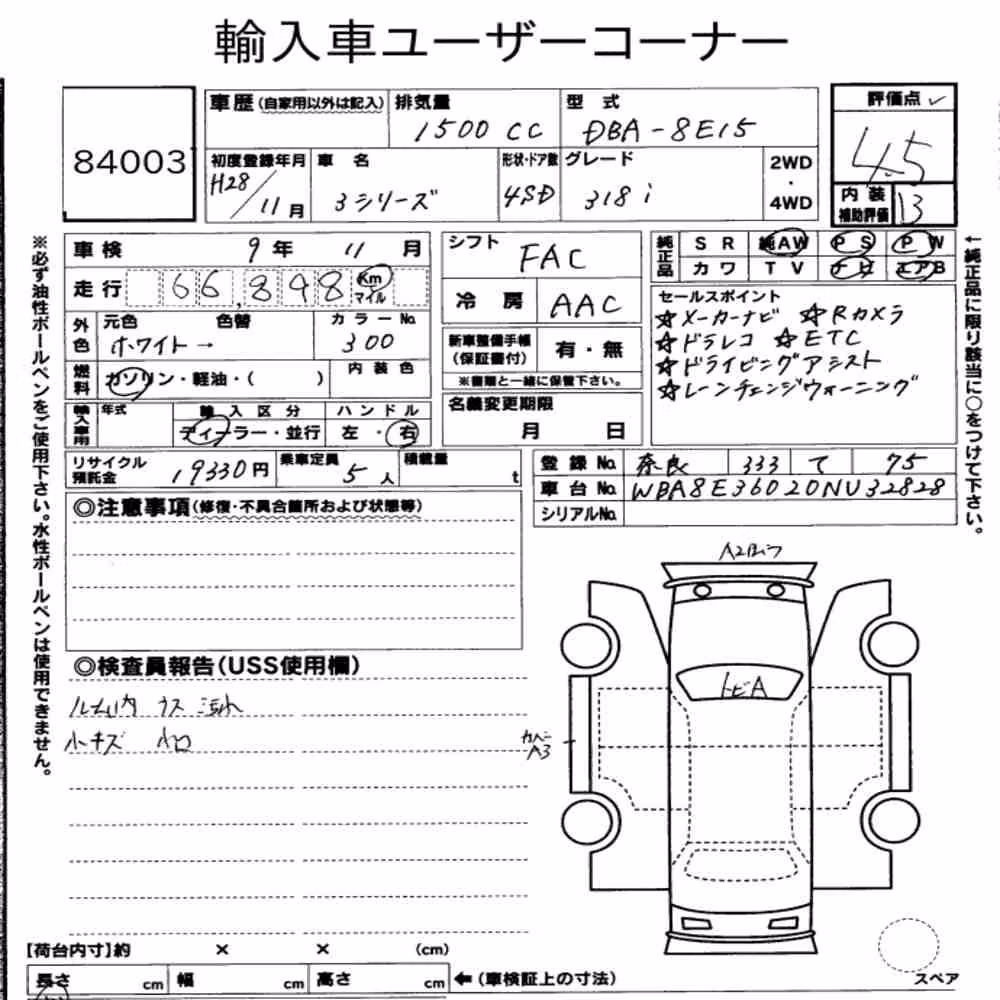 輸入車ユーザーコーナー
84003
車歴(自家用以外は記入) 排気量 1500 CC 型式 DBA-8E15
初度登録年月 H28/11月 車名 3シリーズ 形状・ドア数 4SD グレード 318i 2WD・4WD
評価点 4.5
内装補助評価 B
※必ず油性ボールペンをご使用下さい。水性ボールペンは使用できません。
車検 9年 11月
走行 66,898 Km マイル
外色 元色 ホワイト→ 色替 カラーNo. 300
燃料 ガソリン・軽油・( ) 内装色
輸入車用 年式 輸入区分 ディーラー・並行 ハンドル 左・右
シフト FAC
冷房 AAC
新車整備手帳(保証書付) 有・無
※書類と一緒に保管下さい。
名義変更期限 月 日
純正品 SR 純AW PS PW
カワ TV ナビ エアB
セールスポイント
☆メーカーナビ ☆Rカメラ
☆ドラレコ ☆ETC
☆ドライビングアシスト
☆レーンチェンジウォーニング
←純正品に限り該当に○をつけて下さい。
リサイクル預託金 19330円 乗車定員 5人 積載量 t
登録No. 奈良 333 て 75
車台No. WBA8E36020NU32828
シリアルNo.
◎注意事項(修復・不具合箇所および状態等)
◎検査員報告(USS使用欄)
ルーム内 キズ 汚れ
小キズ
トビA
A3
【荷台内寸】約 × × (cm)
長さ cm 幅 cm 高さ cm ←(車検証上の寸法)
スペア